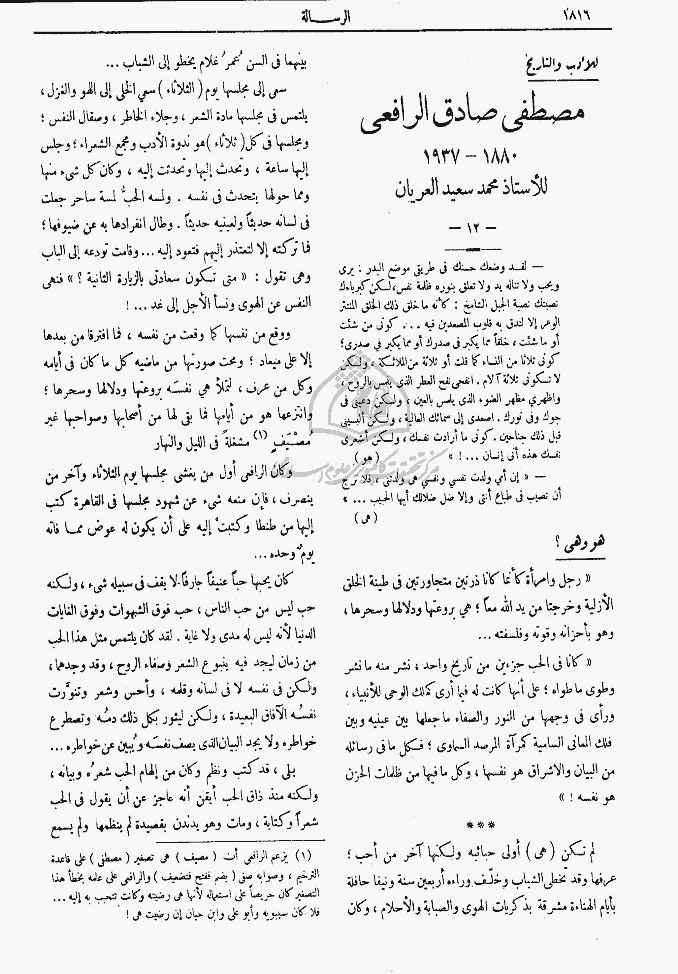 ١٨١٦
الرسالة
للأدب والتاريخ
مصطفى صادق الرافعى
١٨٨٠ - ١٩٣٧
للأستاذ محمد سعيد العريان
- ١٢ -
— لقد وضعك حسنك فى طريق موضع البدر : يرى
ويحب ولا تناله يد ولا تعلق بنوره ظلمة نفس، لكن كبرياءك
نصبتك نصبة الجبل الشامخ : كأنه ما خلق ذلك الخلق المنتثر
الوعر إلا لتدق به قلوب المصعدين فيه ... كونى من شئت
أو ما شئت ، خلقاً مما يكبر فى صدرك أو مما يكبر فى صدرى؛
كونى ثلاثا من النساء كما قلت أو ثلاثة من الملائكة ، ولكن
لا تكونى ثلاثة آلام . انفحى نفح العطر الذى يلمس بالروح ،
واظهرى مظهر الضوء الذى يلمس بالعين ، ولكن دعينى فى
جوك وفى نورك . اصعدى إلى سمائك العالية ، ولكن ألبسينى
قبل ذلك جناحين . كونى ما أرادت نفسك ، ولكن أشعرى
نفسك هذه أنى إنسان ... ! » ( هو )
— « إن أمى ولدت نفسى ونفسى هى ولدتنى ، فلا ترج
أن تصيب فى طباع أنثى وإلا ضل ضلالك أيها الحبيب ... »
( هى )
هو وهى ؟
« رجل وامرأة كأنما كانا ذرتين متجاورتين فى طينة الخلق
الأزلية وخرجتا من يد الله معاً ؛ هى بروعتها ودلالها وسحرها ،
وهو بأحزانه وقوته وفلسفته ...
« كانا فى الحب جزءين من تاريخ واحد ، نشر منه ما نشر
وطوى ما طواه ؛ على أنها كانت له فيما أرى كملك الوحى للأنبياء ،
ورأى فى وجهها من النور والصفاء ما جعلها بين عينيه وبين
فلك المعانى السامية كمرآة المرصد السماوى ؛ فكل ما فى رسائله
من البيان والاشراق هو نفسها ، وكل ما فيها من ظلمات الحزن
هو نفسه ! »
***
لم تكن (هى) أولى حبائبه ولكنها آخر من أحب ؛
عرفها وقد تخطى الشباب وخلّف وراءه أربعين سنة ونيفا حافلة
بأيام الهناءة مشرقة بذكريات الهوى والصبابة والأحلام ، وكان
بينهما فى السن عُمرُ غلام يخطو إلى الشباب ...
سعى إلى مجلسها يوم ( الثلاثاء ) سعى الخلى إلى اللهو والغزل ،
يلتمس فى مجلسها مادة الشعر ، وجلاء الخاطر ، وصقال النفس ؛
ومجلسها فى كل ( ثلاثاء ) هو ندوة الأدب ومجمع الشعراء ؛ وجلس
إليها ساعة ، وتحدث إليها وتحدثت إليه ، وكان كل شىء منها
ومما حولها يتحدث فى نفسه . ولمسه الحبُّ لمسة ساحر جعلت
فى لسانه حديثاً ولعينيه حديثاً . وطال انفرادها به عن ضيوفها ؛
فما تركته إلا لتعتذر إليهم فتعود إليه ... وقامت تودعه إلى الباب
وهى تقول : « متى تكون سعادتى بالزيارة الثانية ؟ » فنهى
النفس عن الهوى ونسأ الأجل إلى غد ... !
ووقع من نفسها كما وقعت من نفسه ، فما افترقا من بعدها
إلا على ميعاد ؛ ومحت صورتها من ماضيه كل ما كان فى أيامه
وكل من عرف ، لتملأ هى نفسَه بروعتها ودلالها وسحرها ؛
وانتزعها هو من أيامها فما بقى لها من أصحابها وصواحبها غير
مُصَيْفٍ (١) مشغلةً فى الليل والنهار
وكان الرافعى أول من يغشى مجلسها يوم الثلاثاء وآخر من
ينصرف ، فإن منعه شىء عن شهود مجلسها فى القاهرة كتب
إليها من طنطا وكتبتْ إليه على أن يكون له عوض مما فاته
يومٌ وحده ...
كان يحبها حباً عنيفاً جارفاً لا يقف فى سبيله شىء ، ولكنه
حب ليس من حب الناس ، حب فوق الشهوات وفوق الغايات
الدنيا لأنه ليس له مدى ولا غاية . لقد كان يلتمس مثل هذا الحب
من زمان ليجد فيه ينبوع الشعر وصفاء الروح ، وقد وجدهما ،
ولكن فى نفسه لا فى لسانه وقلمه ، وأحس وشعر وتنوَّرت
نفسُه الآفاق البعيدة ، ولكن ليثور بكل ذلك دمُه وتصطرع
خواطره ولا يجد البيان الذى يصف نفسَه ويُبين عن خواطره ...
بلى ، قد كتب ونظم وكان من إلهام الحب شعرُه وبيانه ،
ولكنه منذ ذاق الحب أيقن أنه عاجز عن أن يقول فى الحب
شعراً وكتابة ، ومات وهو يدندن بقصيدة لم ينظمها ولم يسمع
(١) يزعم الرافعى أن ( مصيف ) هى تصغير ( مصطفى ) على قاعدة
الترخيم ، وصوابه صفى ( بضم ففتح فتضعيف ) والرافعى على علمه بخطأ هذا
التصغير كان حريصاً على استعماله لأنها هى رضيته وكانت تتحبب به إليه ...
فلا كان سيبويه وأبو على وابن حيان إن رضيت هى !